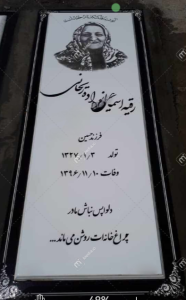 رقیه اسمعیل نژاد دویستجانی
فرزند حسین
تولد ۱۳۲۷/۱/۳
وفات ۱۳۹۶/۱۱/۱۰
دلواپس نباش مادر
چراغ خانه‌ات روشن می‌ماند...